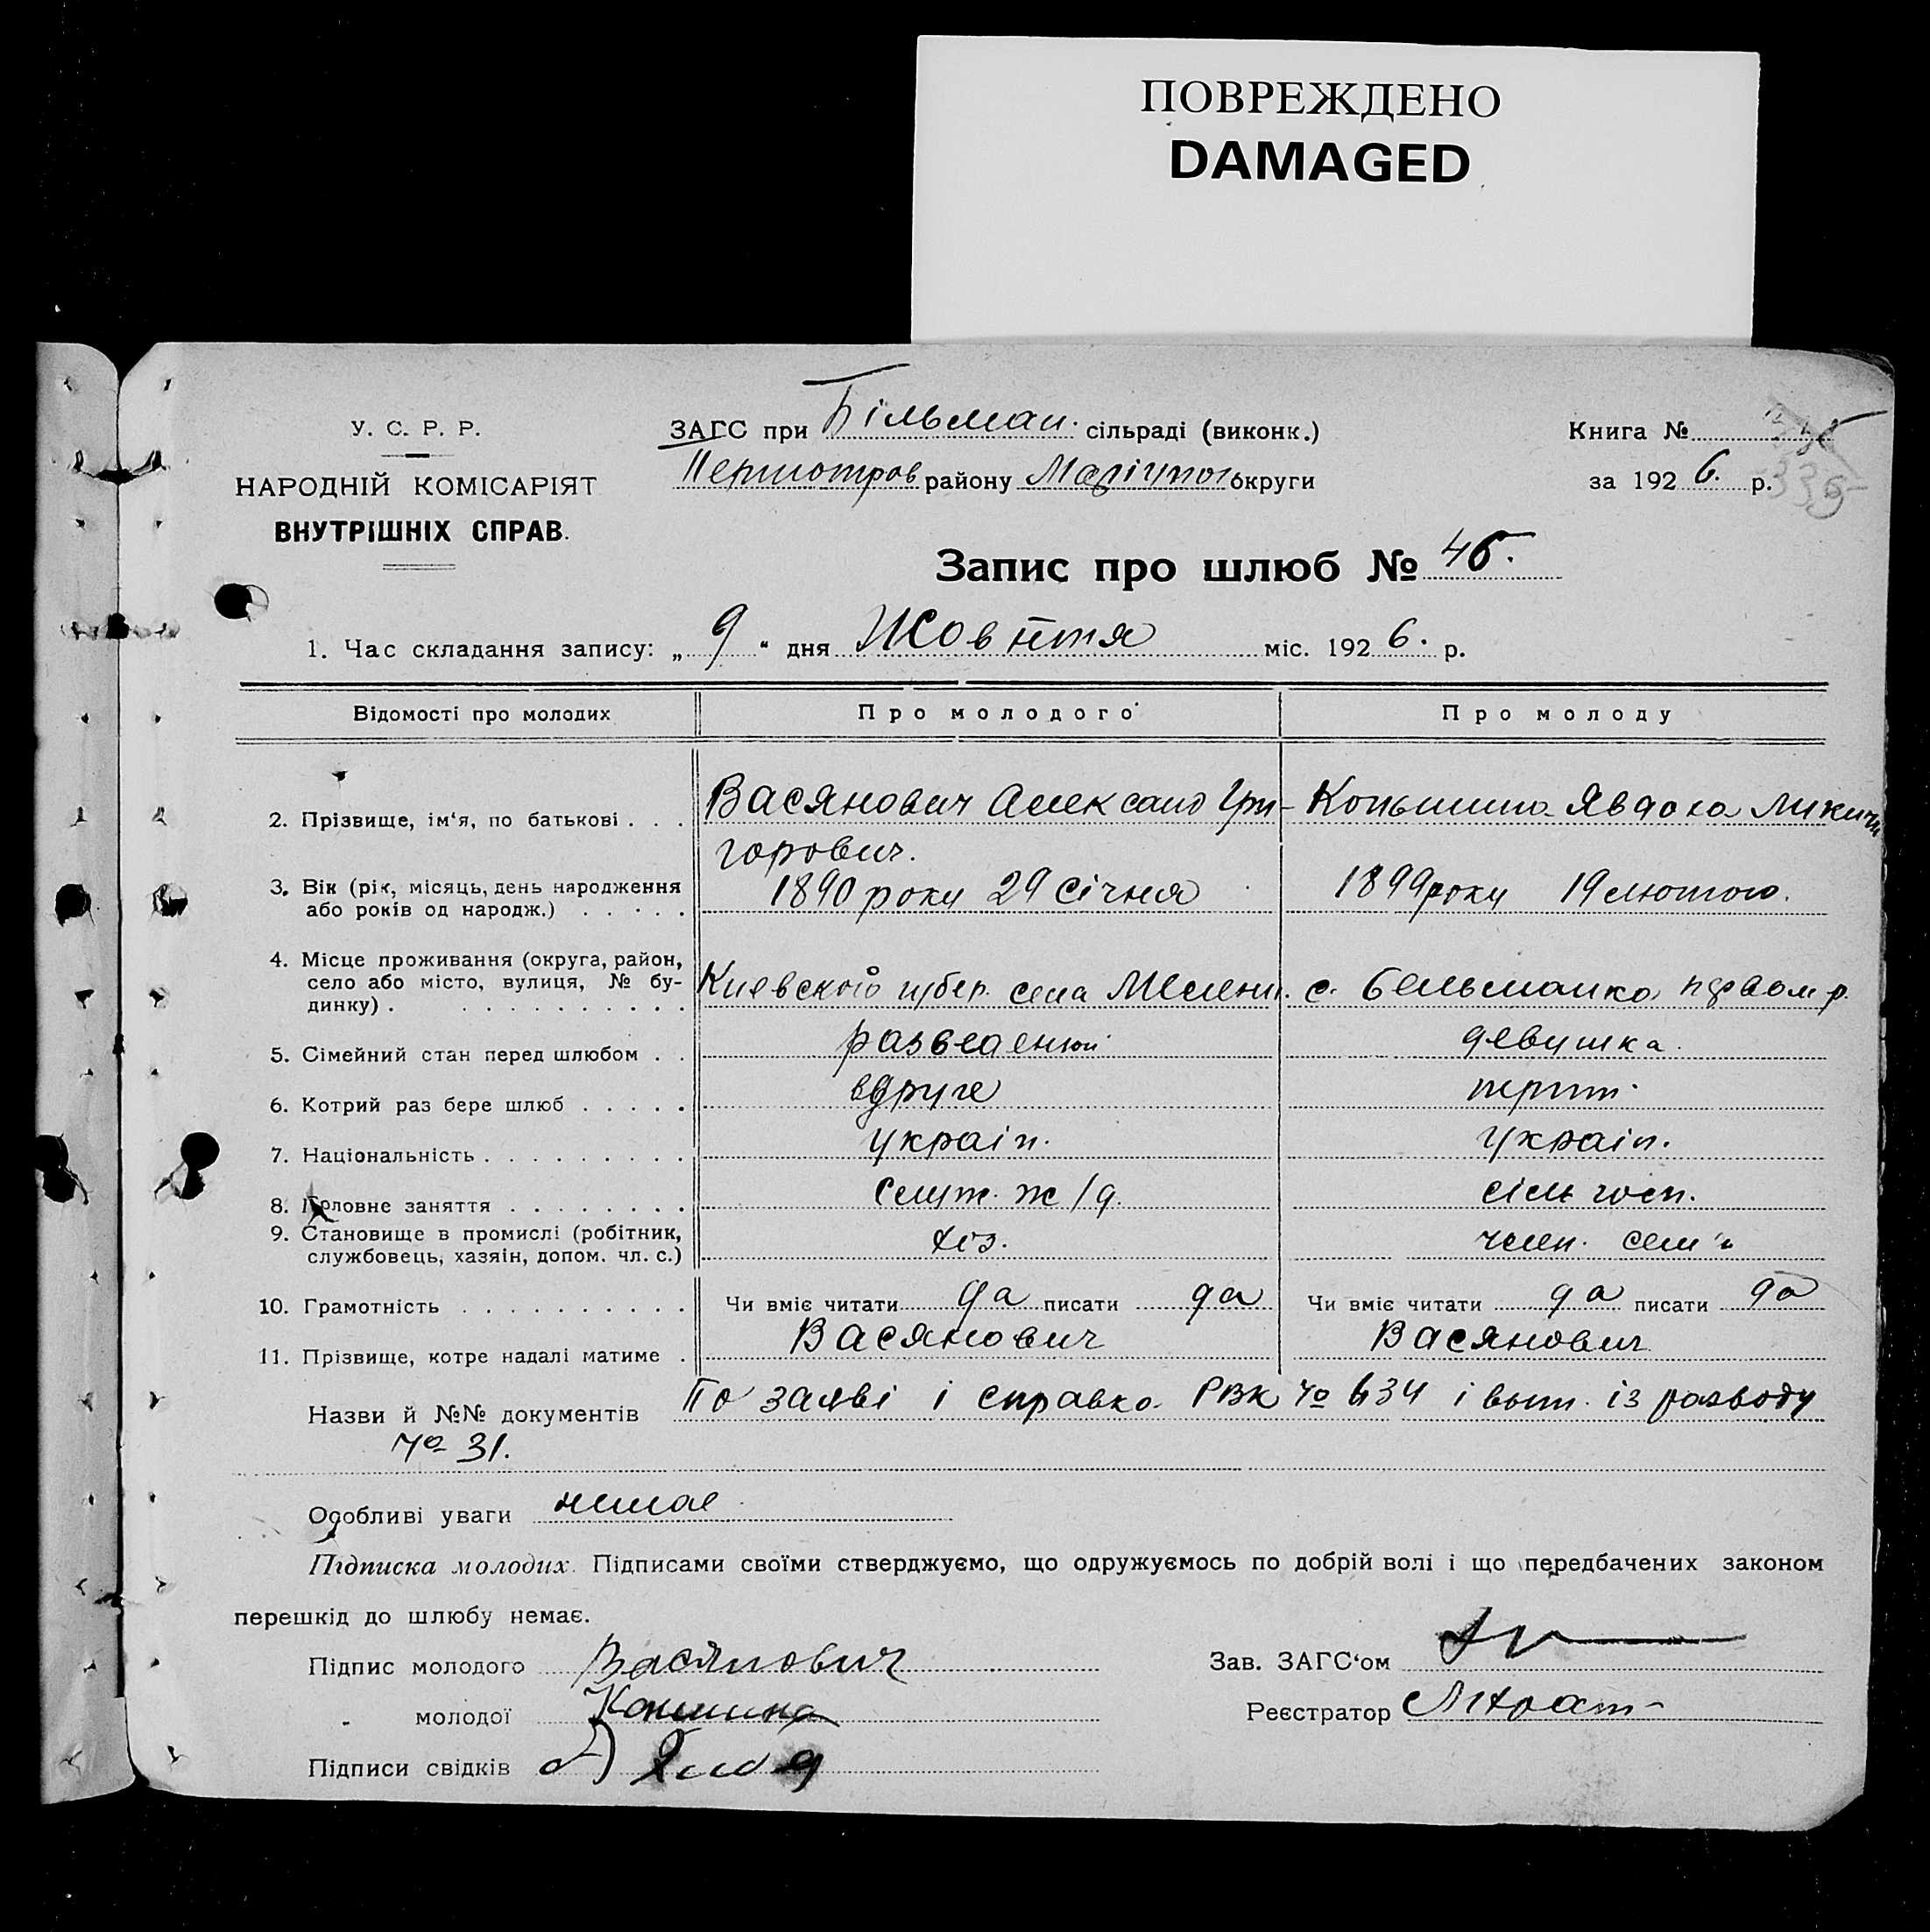 ПОВРЕЖДЕНО
DAMAGED
У. С. Р. Р.
НАРОДНІЙ КОМІСАРІЯТ
ВНУТРІШНІХ СПРАВ.
ЗАГС при Більман. сільраді (виконк.)
Першотров району Маріупол округи
Книга №
за 1926. р.
Запис про шлюб № 45.
1. Час складання запису: „9“ дня Жовтня міс. 1926. р.
Відомості про молодих Про молодого Про молоду
2. Прізвище, ім'я, по батькові . . . Васянович Александ Гри- Явдоха
горович.
3. Вік (рік, місяць, день народження
або років од народж.) . . . . . 1890 року 29 Січня 1899 року 19 лютого.
4. Місце проживання (округа, район,
село або місто, вулиця, № бу-
динку) . . . . . . . . . . . Киевского губер. села с. Бельманка
5. Сімейний стан перед шлюбом . . разведеный девушка.
6. Котрий раз бере шлюб . . . . . вдруге
7. Національність . . . . . . . . . україн. україн.
8. Головне заняття . . . . . . . . служ. ж/д. сіль госп.
9. Становище в промислі (робітник,
службовець, хазяін, допом. чл. с.) член. сем'и
10. Грамотність . . . . . . . . . . Чи вміє читати да писати да Чи вміє читати да писати да
11. Прізвище, котре надалі матиме . Васянович Васянович
Назви й №№ документів По заяві і справка РВК № 634 і вып. із разводу
№ 31.
Особливі уваги немає
Підписка молодих. Підписами своїми стверджуємо, що одружуємось по добрій волі і що передбачених законом
перешкід до шлюбу немає.
Підпис молодого Васянович Зав. ЗАГС'ом
„ молодої Реєстратор
Підписи свідків